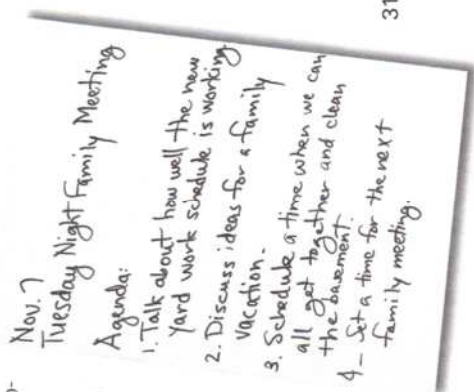 Nov. 7
Tuesday Night Family Meeting
Agenda:
1. Talk about how well the new
yard work schedule is working
2. Discuss ideas for a family
vacation.
3. Schedule a time when we can
all get together and clean
the basement.
4 - Set a time for the next
family meeting.
31